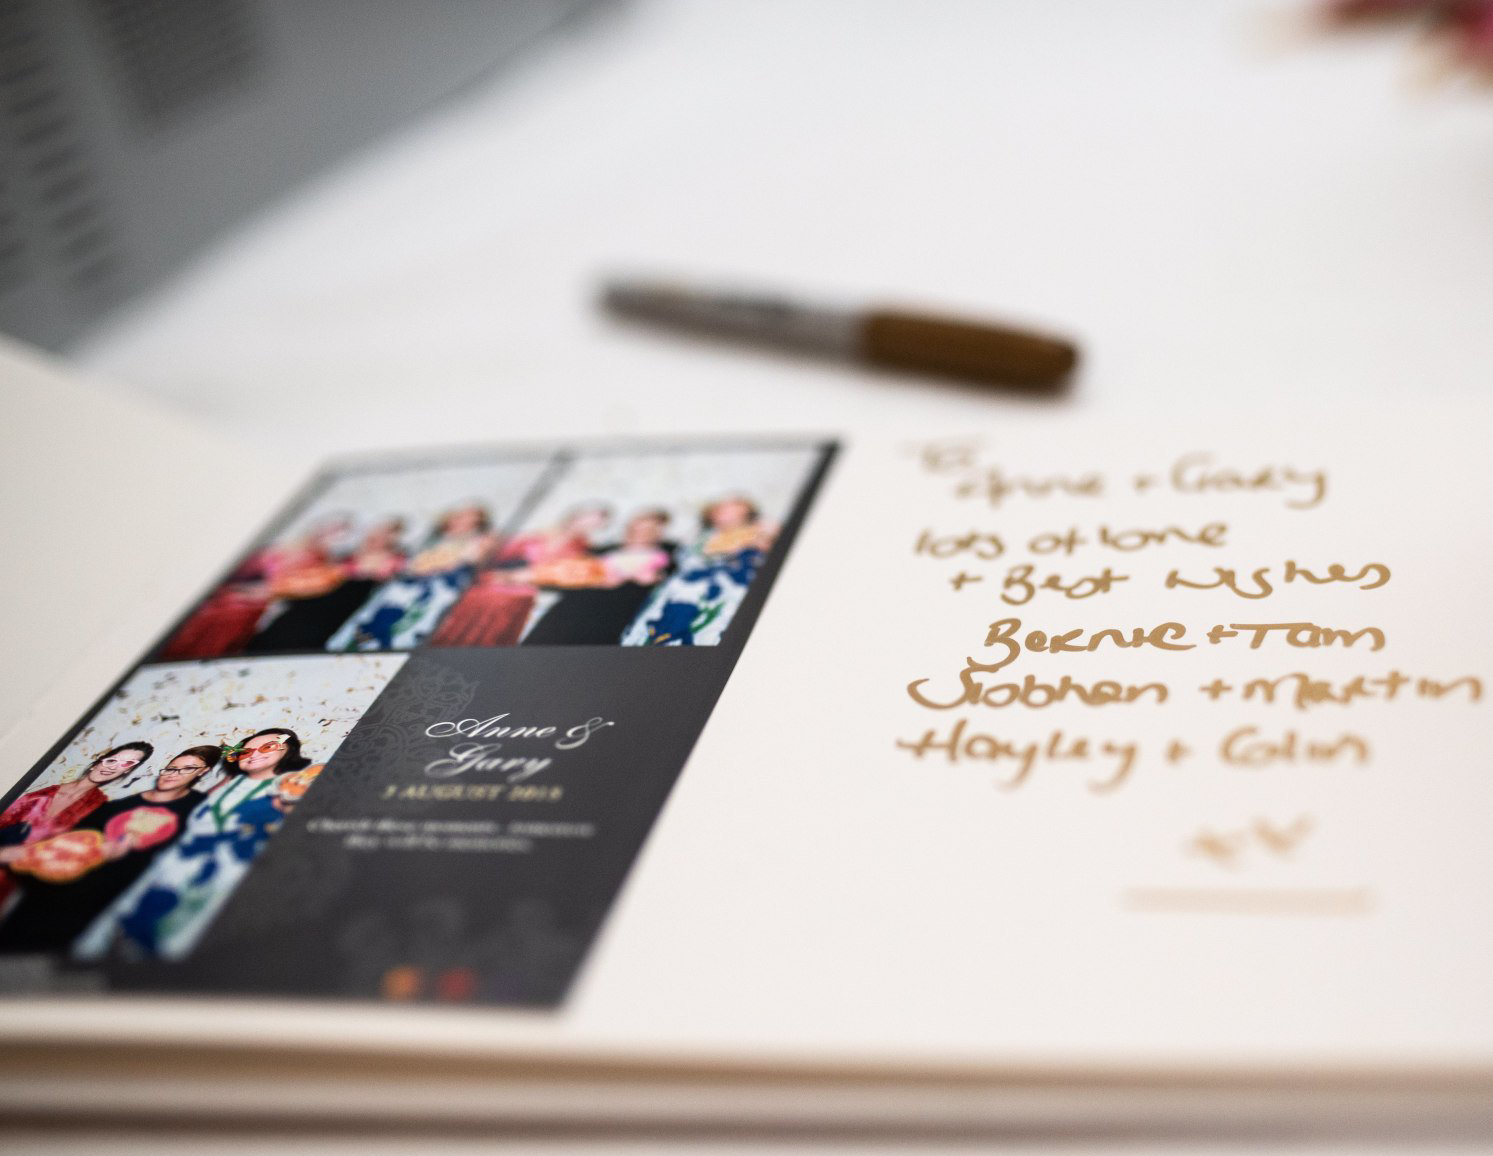 Anne &
Gary
AUGUST 2018
To
Anne + Gary
lots of love
+ Best wishes
Bernie + Tam
Siobhan + Martin
Hayley + Colin
xx